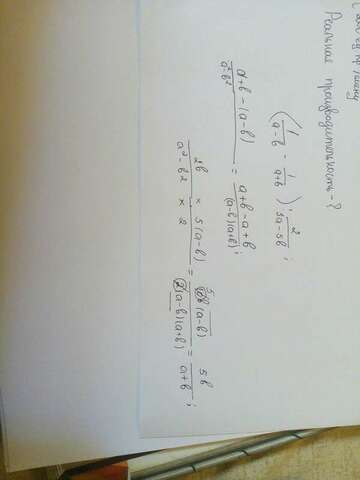 Реальная производительность - ?
(1/(a-b) - 1/(a+b)) : 2/(5a-5b);
(a+b-(a-b))/(a²-b²) = (a+b-a+b)/((a-b)(a+b));
2b/(a²-b²) × 5(a-b)/2 = 10b(a-b)/(2(a-b)(a+b)) = 5b/(a+b);